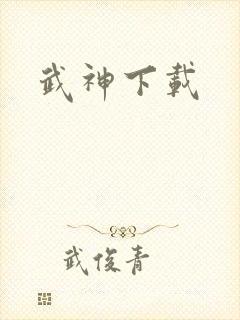 武神下載
武俊青